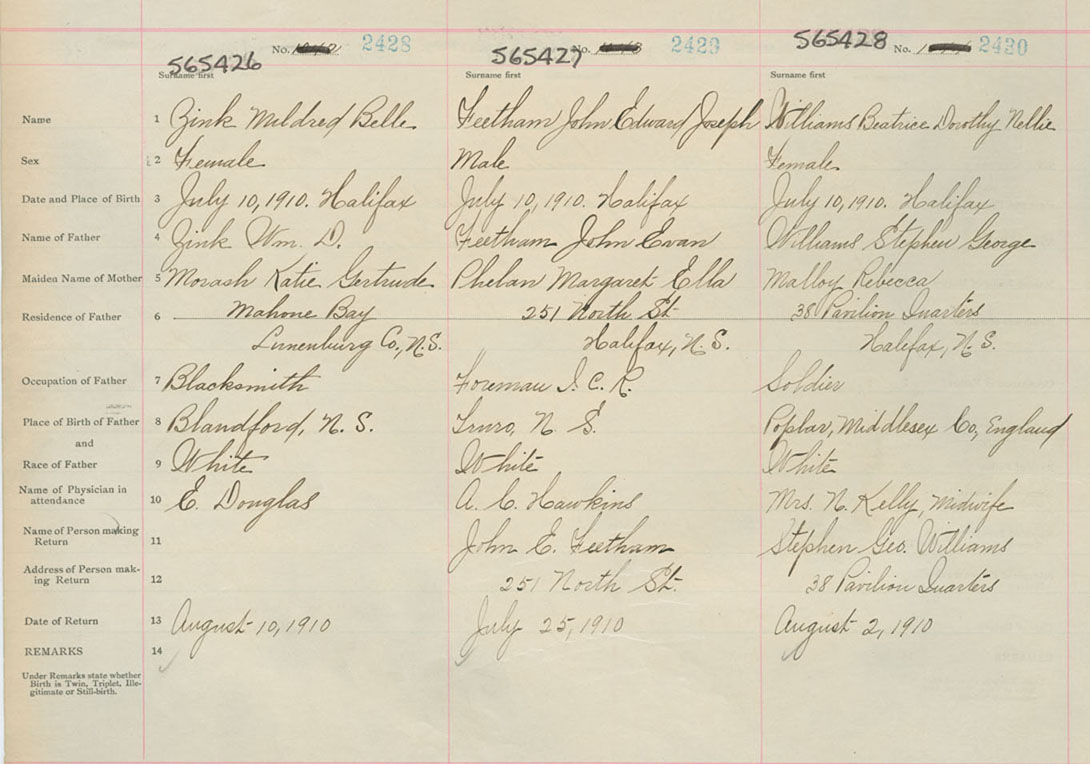 565426 No. 2428 565427 No. 2429 565428 No. 2430
Surname first Surname first Surname first
Name 1 Zink Mildred Belle Feetham John Edward Joseph Williams Beatrice Dorothy Nellie
Sex 2 Female Male Female
Date and Place of Birth 3 July 10, 1910. Halifax July 10, 1910. Halifax July 10, 1910. Halifax
Name of Father 4 Zink Wm. D. Feetham John Evan Williams Stephen George
Maiden Name of Mother 5 Morash Katie Gertrude Phelan Margaret Ella Malloy Rebecca
Residence of Father 6 Mahone Bay 251 North St. 38 Pavilion Quarters
Lunenburg Co., N.S. Halifax, N.S. Halifax, N.S.
Occupation of Father 7 Blacksmith Foreman I.C.R. Soldier
Place of Birth of Father 8 Blandford, N.S. Truro, N.S. Poplar, Middlesex Co, England
and
Race of Father 9 White White White
Name of Physician in
attendance 10 E. Douglas A. C. Hawkins Mrs. N. Kelly, Midwife
Name of Person making
Return 11 John E. Feetham Stephen Geo. Williams
Address of Person mak-
ing Return 12 251 North St. 38 Pavilion Quarters
Date of Return 13 August 10, 1910 July 25, 1910 August 2, 1910
REMARKS 14
Under Remarks state whether
Birth is Twin, Triplet, Ille-
gitimate or Still-birth.